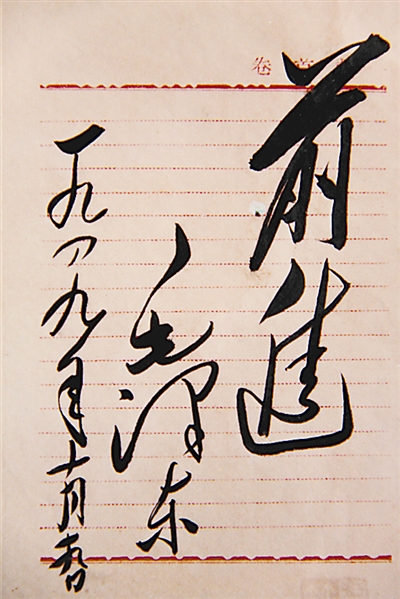 卷
前進
毛泽东
一九四九年十月